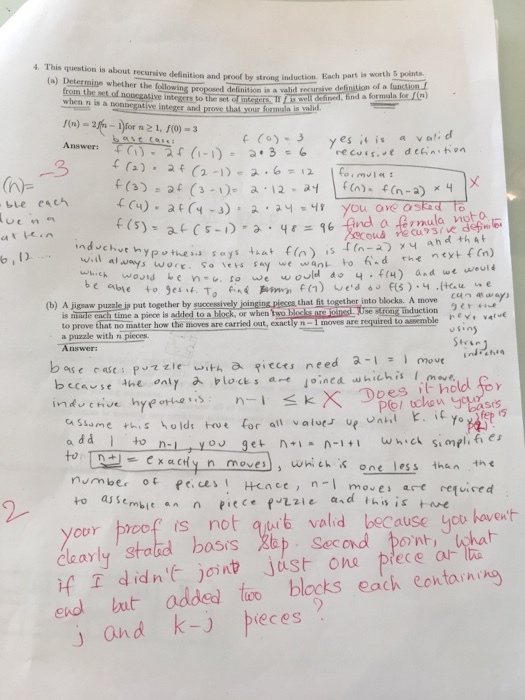 4. This question is about recursive definition and proof by strong induction. Each part is worth 5 points.
(a) Determine whether the following proposed definition is a valid recursive definition of a function f
from the set of nonegative integers to the set of integers. If f is well defined, find a formula for f(n)
when n is a nonnegative integer and prove that your formula is valid.
f(n) = 2f(n − 1) for n ≥ 1, f(0) = 3
base case:
Answer:
f(0) = 3
f(1) = 2f (1-1) = 2•3 = 6
f(2) = 2f (2-1) = 2•6 = 12
f(3) = 2f (3-1) = 2•12 = 24
f(4) = 2f (4-3) = 2•24 = 48
f(5) = 2f (5-1) = 2•48 = 96
yes it is a valid
recursive definition
formula:
f(n) = f(n-2) x 4
X
-3
you are asked to
find a formula not a
second recursive definition
(n)=
ble each
lue in a
6, 12...
inductive hypothesis says that f(n) is f(n-2) x4 and that
will always work. So lets say we want to find the next f(n)
which would be n=6. so we would do 4•f(4) and we would
be able to get it. To find f(7) we'd do f(5)•4. Hence we
can always
get the
next value
using
Strong
induction
(b) A jigsaw puzzle is put together by successively joinging pieces that fit together into blocks. A move
is made each time a piece is added to a block, or when two blocks are joined. Use strong induction
to prove that no matter how the moves are carried out, exactly n − 1 moves are required to assemble
a puzzle with n pieces.
Answer:
base case: puzzle with 2 pieces need 2-1 = 1 move
because the only 2 blocks are joined which is 1 move.
inductive hypothesis: n-1 ≤ k X
Does it hold for
P(0) when your
basis
step is
P(2)?
assume this holds true for all values up until k. if you
add 1 to n-1, you get n+1 = n-1+1 which simplifies
to n+1 = exactly n moves, which is one less than the
number of peices! Hence, n-1 moves are required
to assemble an n piece puzzle and this is true
2
your proof is not quite valid because you haven't
clearly stated basis step. Second point, what
if I didn't joint just one piece at the
end but added two blocks each containing
j and k-j pieces?